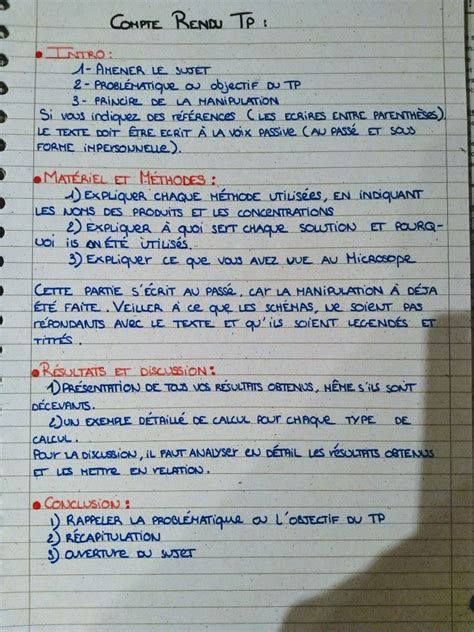 COMPTE RENDU TP :
• INTRO :
1- AMENER LE SUJET
2- PROBLÉMATIQUE OU OBJECTIF DU TP
3- PRINCIRE DE LA MANIPULATION
Si vous indiquez des RÉFÉRENCES ( LES ECRIRES ENTRE PARENTHÈSES).
LE TEXTE DOIT ÊTRE ECRIT À LA VOIX PASSIVE ( AU PASSÉ ET SOUS
FORME IMPERSONNELLE ).
• MATÉRIEL ET MÉTHODES :
1) EXPLIQUER CHAQUE MÉTHODE UTILISÉES, EN INDIQUANT
LES NOMS DES PRODUITS ET LES CONCENTRATIONS
2) EXPLIQUER À QUOI SERT CHAQUE SOLUTION ET POURQ-
UOI ILS ON ÉTÉ UTILISÉS.
3) EXPLIQUER CE QUE VOUS AVEZ VUE AU MICROSOPE
CETTE PARTIE S'ÉCRIT AU PASSÉ, CAR LA MANIPULATION À DÉJA
ÉTÉ FAITE. VEILLER À CE QUE LES SCHÉMAS, NE SOIENT PAS
RÉPONDANTS AVEC LE TEXTE ET QU'ILS SOIENT LEGENDÉS ET
TITRÉS.
• RÉSULTATS ET DISCUSSION :
1) PRÉSENTATION DE TOUS VOS RÉSULTATS OBTENUS, MÊME S'ILS SONT
DÉCEVANTS.
2) UN EXEMPLE DÉTAILLÉ DE CALCUL POUR CHAQUE TYPE DE
CALCUL.
POUR LA DISCUSSION, IL FAUT ANALYSER EN DÉTAIL LES RÉSULTATS OBTENUS
ET LES METTRE EN RELATION.
• CONCLUSION :
1) RAPPELER LA PROBLÉMATIQUE OU L'OBJECTIF DU TP
2) RÉCAPITULATION
3) OUVERTURE DU SUJET